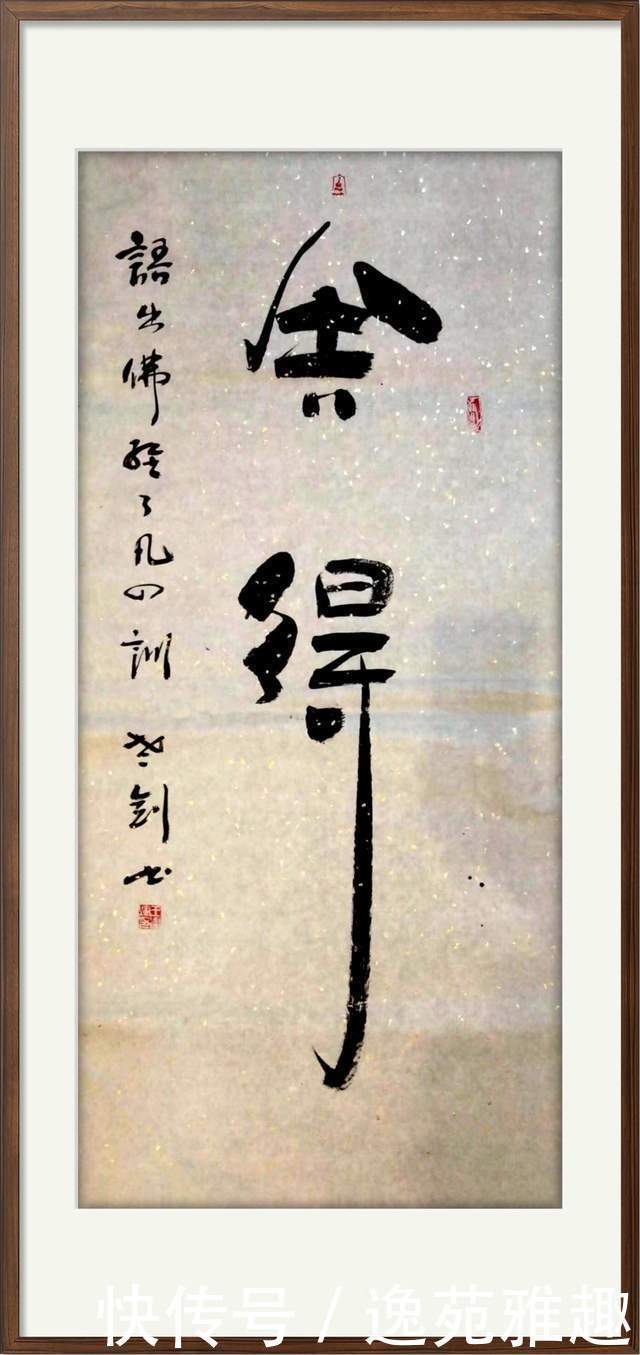 舍得
語出佛經了凡四訓 老剑书
快传号 / 逸苑雅趣